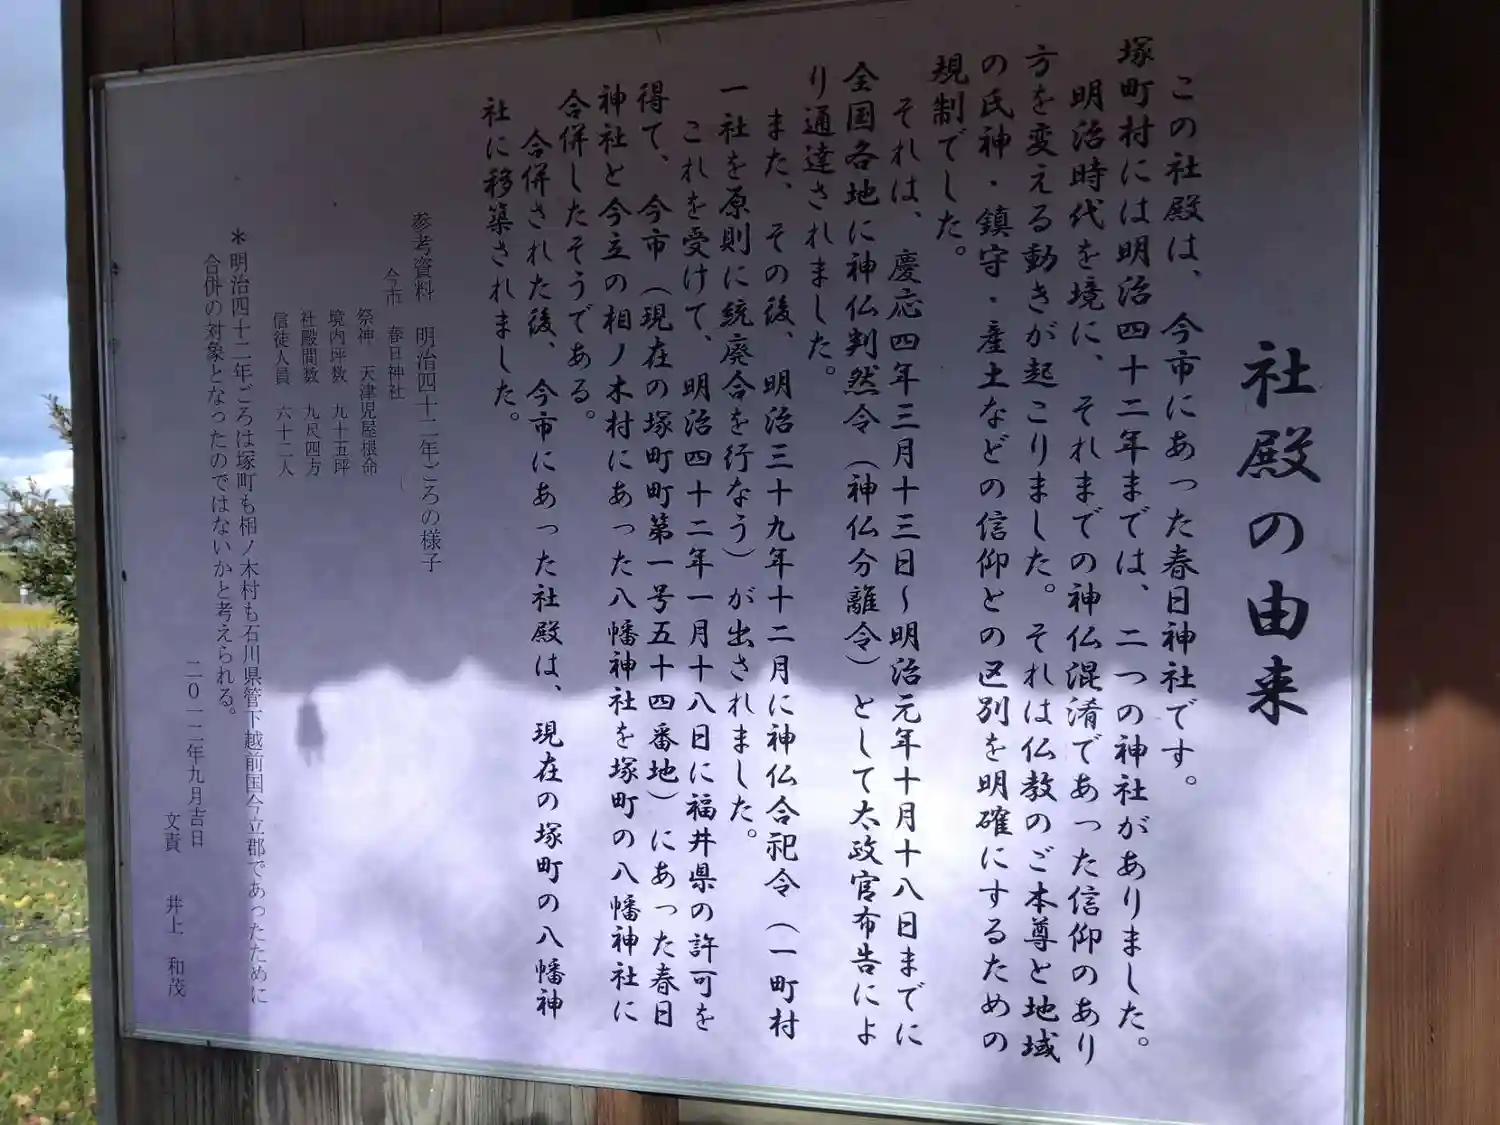 社殿の由来
この社殿は、今市にあった春日神社です。
塚町村には明治四十二年までは、二つの神社がありました。
明治時代を境に、それまでの神仏混淆であった信仰のあり
方を変える動きが起こりました。それは仏教のご本尊と地域
の氏神・鎮守・産土などの信仰との区別を明確にするための
規制でした。
それは、慶応四年三月十三日～明治元年十月十八日までに
全国各地に神仏判然令（神仏分離令）として太政官布告によ
り通達されました。
また、その後、明治三十九年十二月に神仏合祀令（一町村
一社を原則に統廃合を行なう）が出されました。
これを受けて、明治四十二年一月十八日に福井県の許可を
得て、今市（現在の塚町町第一号五十四番地）にあった春日
神社と今立の相ノ木村にあった八幡神社を塚町の八幡神社に
合併したそうである。
合併された後、今市にあった社殿は、現在の塚町の八幡神
社に移築されました。
参考資料 明治四十二年ごろの様子
今市 春日神社
祭神 天津児屋根命
境内坪数 九十五坪
社殿間数 九尺四方
信徒人員 六十二人
＊明治四十二年ごろは塚町も相ノ木村も石川県管下越前国今立郡であったために
合併の対象となったのではないかと考えられる。
二〇一二年九月吉日
文責 井上 和茂